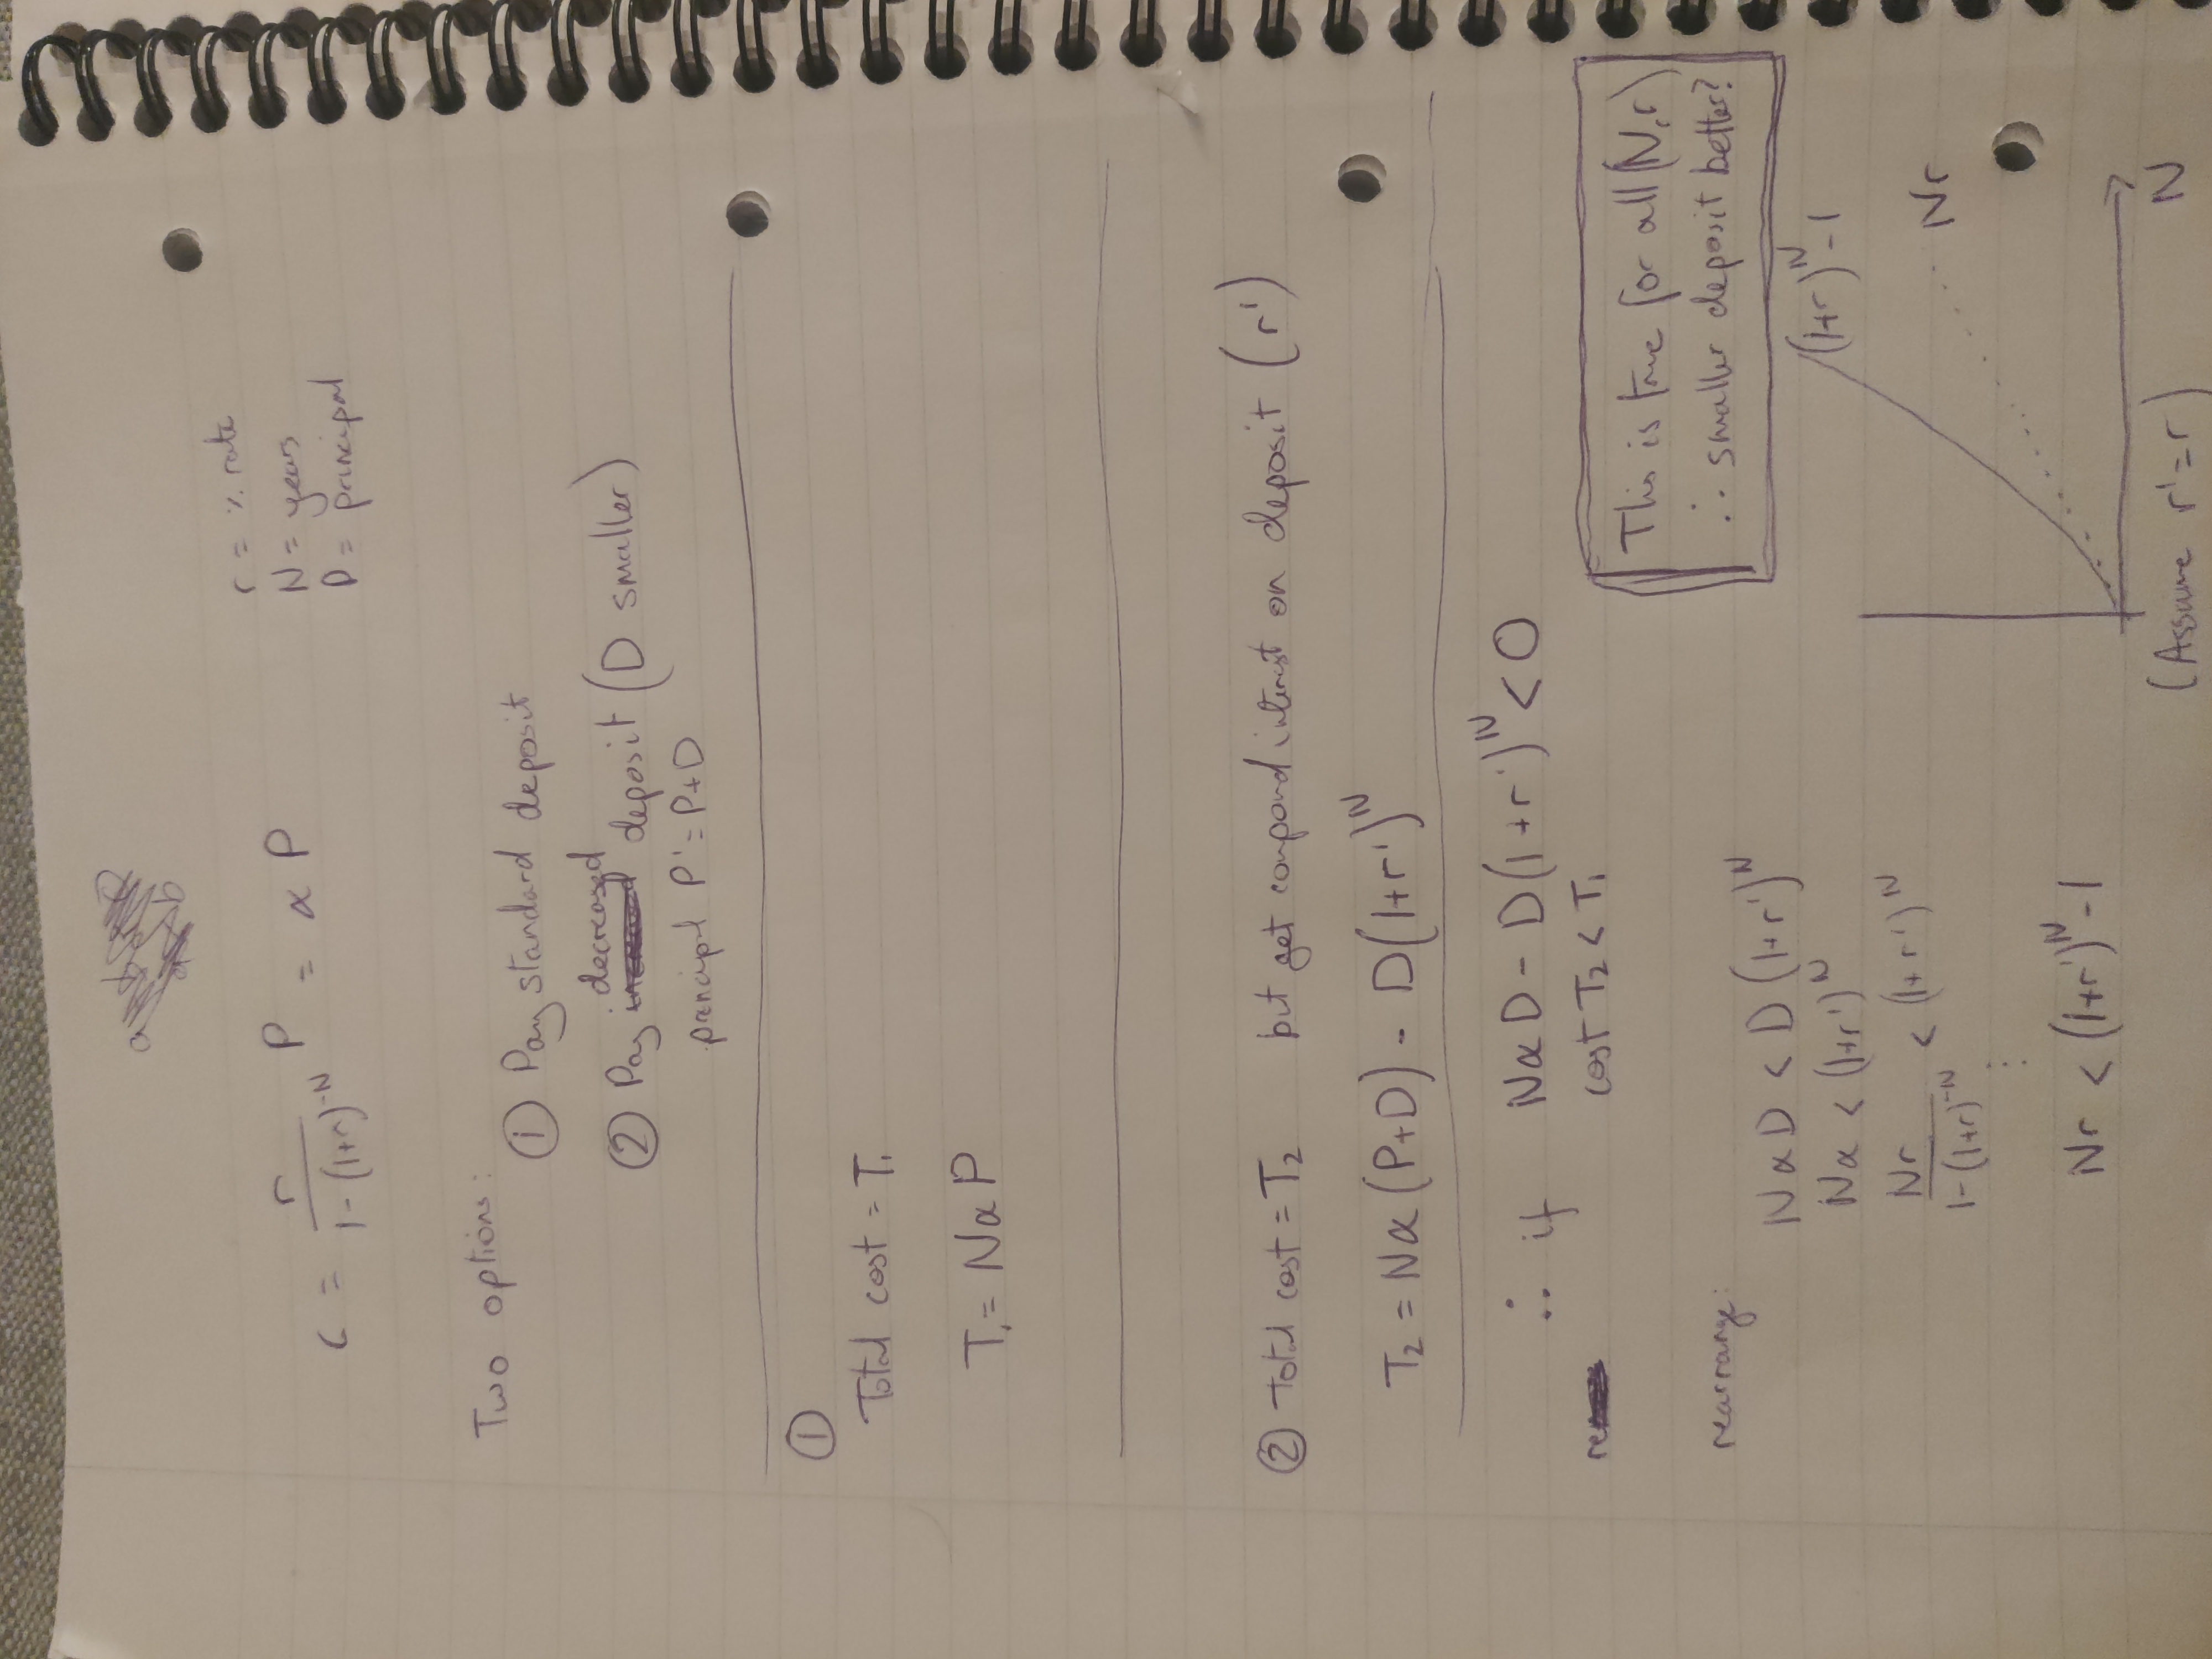 r = % rate
N = years
P = principal
c = r / 1-(1+r)^-N P = α P
Two options:
① Pay standard deposit
② Pay decreased deposit (D smaller)
principal P' = P+D
①
Total cost = T₁
T₁ = NαP
② Total cost = T₂ but get compound interest on deposit (r')
T₂ = Nα(P+D) - D(1+r')^N
∴ if NαD - D(1+r')^N < 0
cost T₂ < T₁
This is true for all (N,r)
∴ smaller deposit better?
rearrange:
NαD < D(1+r')^N
Nα < (1+r')^N
Nr / 1-(1+r)^-N < (1+r')^N
⋮
Nr < (1+r')^N - 1
(1+r)^N - 1
Nr
N
(Assume r'=r)